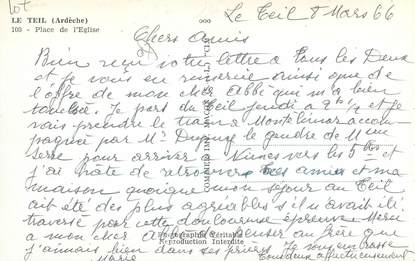 Lot
LE TEIL (Ardèche)
100 - Place de l'Eglise
Le Teil 8 Mars 66
Chers Amis
Bien reçu votre lettre à tous les Deux
et je vous en remercie ainsi que de
l'offre de mon cher Abbé qui m'a bien
touchée. Je pars du Teil jeudi a
vais prendre le train a Montelimar accom-
pagnée par Mr le gendre de Mme
Serre pour arriver a Nimes vers les 5
j'ai hate de retrouver mes amies et ma
maison quoique mon sejour au Teil
ait été des plus agréables s'il n'avait été
traversé par cette douloureuse épreuve Merci
a mon cher Abbé de penser au frère que
j'aimais bien dans ses prières Je vous embrasse
Tous deux affectueusement
Marie
Photographie Véritable
Reproduction Interdite